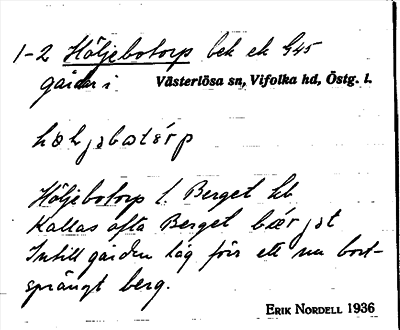 1-2 Höljebotorp bek ek G45
gårdar i Västerlösa sn, Vifolka hd, Östg. l.
Höljebotorp l. Berget kb
Kallas ofta Berget
Intill gården låg förr ett nu bort-
sprängt berg.
ERIK NORDELL 1936